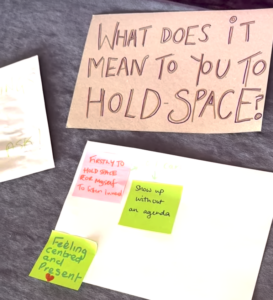 WHAT DOES iT
MEAN TO YOU TO
HOLD-SPACE?
FIRSTLY TO
HOLD SPACE
FOR MYSELF
Show up
without
an agenda
Feeling
centred
and
Present